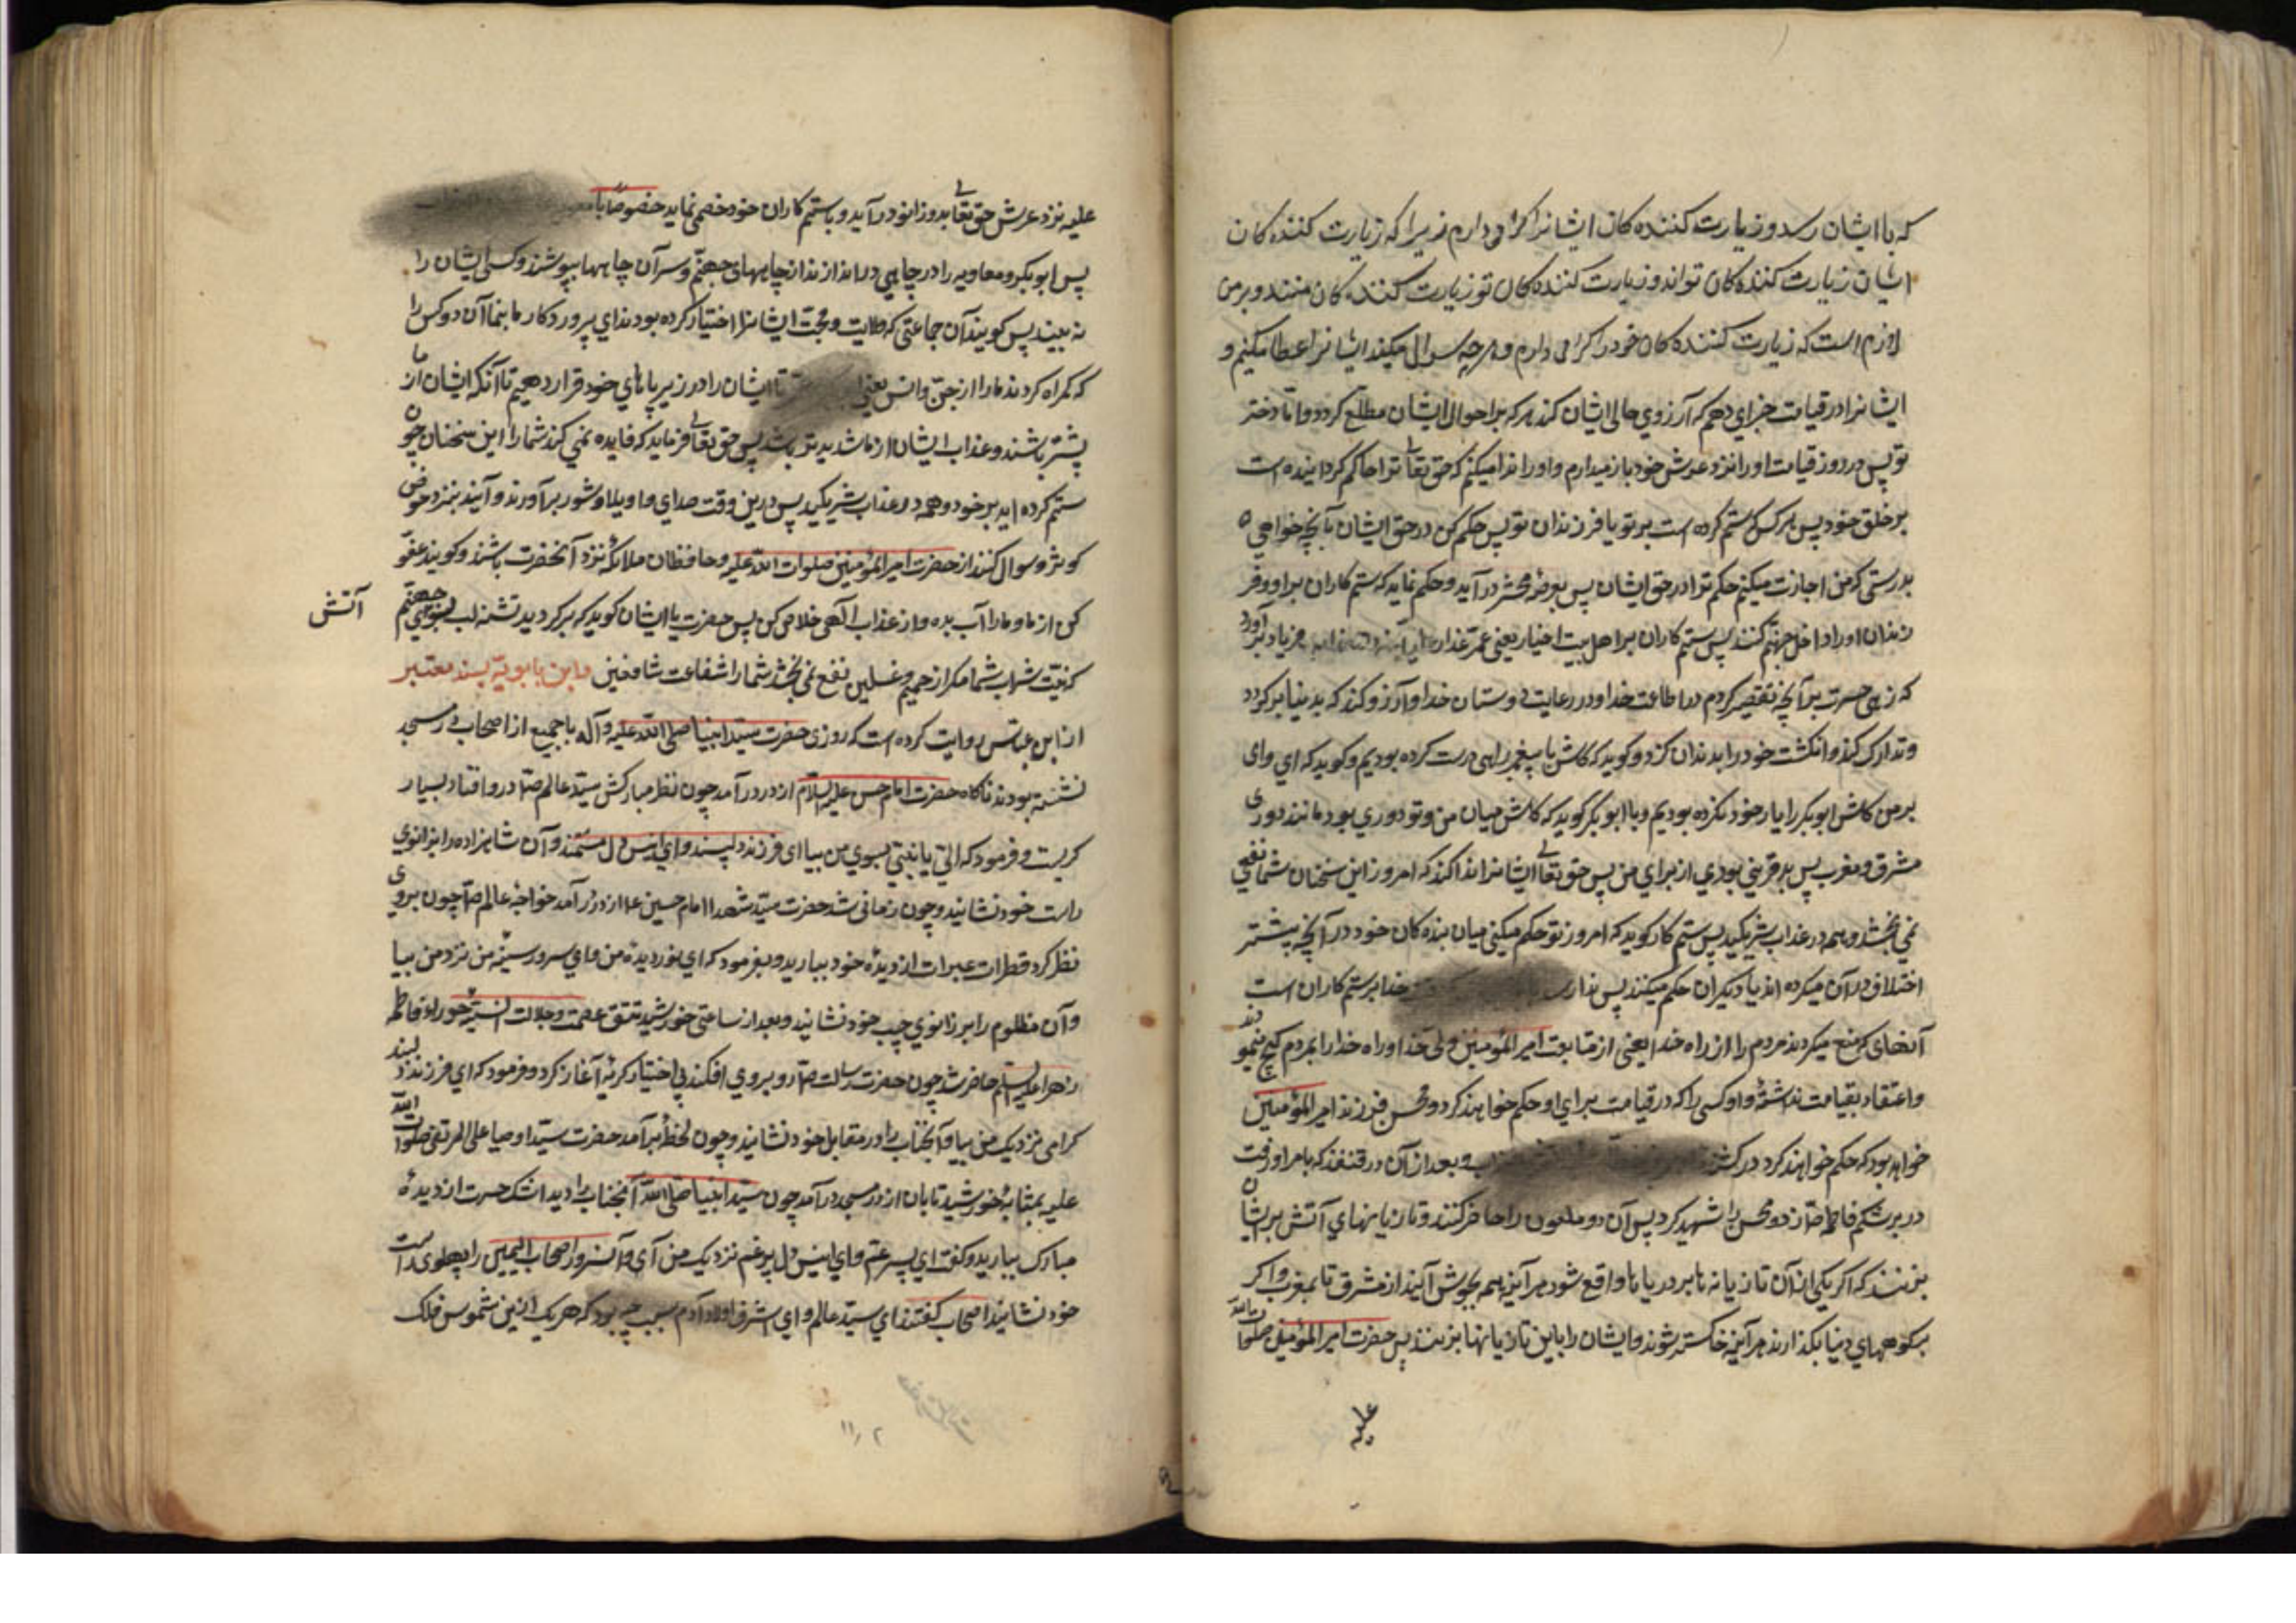 که با ایشان رسد و زیارت کننده کان ایشانرا کرامی دارم زیرا که زیارت کننده کان
ایشان زیارت کننده کان تواند و زیارت کننده کان تو زیارت کننده کان منند و بر من
لازم است که زیارت کننده کان خود را کرامی دارم و هر چه سوال میکنند ایشانرا عطا میکنم و
ایشانرا در قیامت جزای دهم که آرزوی حال ایشان کند هر که بر احوال ایشان مطلع کردد و اما دختر
تو پس در روز قیامت او را نزد عرش خود باز میدارم و او را ندا میکنم که حق تعالی ترا حاکم کردانیده است
بر خلق خود پس هر کس که ستم کرده است بر تو یا فرزندان تو پس حکم کن در حق ایشان بآنچه خواهی
بدرستی که من اجازت میکنم حکم ترا در حق ایشان پس بعرصه محشر در آید و حکم نماید که ستم کاران بر او و فر
زندان او را داخل جهنم کنند پس ستم کاران بر اهل بیت اخیار یعنی عمر غدار فریاد بر آورد
که زهی حسرت بر آنچه تقصیر کردم در اطاعت خدا و در رعایت دوستان خدا و آرزو کند که بدنیا بر کردد
و تدارک کند و انکشت خود را بدندان کزد و کوید که کاش با پیغمبر راهی درست کرده بودیم و کوید که ای وای
بر من کاش ابو بکر را یار خود نکرده بودیم و با ابو بکر کوید که کاش میان من و تو دوری بود مانند دوری
مشرق و مغرب پس بد قرینی بودی از برای من پس حق تعالی ایشانرا ندا کند که امروز این سخنان شما نفعی
نمی بخشد و همه در عذاب شریکید پس ستم کار کوید که امروز تو حکم میکنی میان بنده کان خود در آنچه پیشتر
اختلاف در آن میکرده اند یا دیکران حکم میکنند پس ندا رسد خدا بر ستم کاران است
آنهای که منع میکردند مردم را از راه خدا یعنی از متابعت امیر المؤمنین ولی خدا و راه خدا را بمردم کج مینمودند
و اعتقاد بقیامت نداشتند و اول کسی را که در قیامت برای او حکم خواهند کرد محسن فرزند امیر المؤمنین
خواهد بود که حکم خواهند کرد در کشنده و بعد از آن در قنفذ که بامر او رفت
در بر شکم فاطمه ص زد و محسن را شهید کرد پس آن دو ملعون را حاضر کنند و تازیانهای آتش بر ایشان
بزنند که اکر یکی از آن تازیانه ها بر دریاها واقع شود هر آینه همه بجوش آیند از مشرق تا بمغرب و اکر
بر کوههای دنیا بکذارند هر آینه خاکستر شوند و ایشان را باین تازیانها بزنند پس حضرت امیر المؤمنین صلوات الله
علیه
علیه نزد عرش حق تعالی بدو زانو در آید و با ستم کاران خود خصمی نماید خصوصًا با
پس ابو بکر و معاویه را در چاهی در اندازند از چاههای جهنم و سر آن چاهها بپوشند و کسی ایشان را
نه بیند پس کویند آن جماعتی که ولایت و محبت ایشانرا اختیار کرده بودند ای پروردکار ما بنما آن دو کس را
که کمراه کردند ما را از جن و انس یعنی تا ایشان را در زیر پاهای خود قرار دهیم تا آنکه ایشان از ما
پشتر باشند و عذاب ایشان از ما شدید تر باشد پس حق تعالی فرماید که فایده نمی کند شما را این سخنان چون
ستم کرده اید بر خود و همه در عذاب شریکید پس درین وقت صدای واویلا و شور بر آورند و آیند بنزد حوض
کوثر و سوال کنند از حضرت امیر المؤمنین صلوات الله علیه و حافظان ملائکه نزد آنحضرت باشند و کویند عفو
کن از ما و ما را آب بده و از عذاب الهی خلاص کن پس حضرت با ایشان کوید که بر کردید تشنه لب بسوی جهنم
آتش
که نیت شراب شما مکر از حمیم و غسلین نفع نمی بخشد شما را شفاعت شافعین و ابن بابویه بسند معتبر
از ابن عباس روایت کرده است که روزی حضرت سید انبیا صلی الله علیه و آله با جمیع از اصحاب در مسجد
نشسته بودند ناکاه حضرت امام حسن علیه السلام از در در آمد چون نظر مبارکش سید عالم ص در او افتاد بسیار
کریست و فرمود که الی یا بنی بسوی من بیا ای فرزند دلپسند و ای انیس دل مستمند و آن شاهزاده را بزانوی
راست خود نشانید و چون زمانی شد حضرت سید شهدا امام حسین ع از در در آمد خواجه عالم ص چون بروی
نظر کرد قطرات عبرات از دیده خود ببارید و بفرمود که ای نور دیده من و ای سرور سینه من نزد من بیا
و آن مظلوم را بر زانوی چپ خود نشانید و بعد از ساعتی خورشید تتق عصمت و جلالت انسیه حورا فاطمه
زهرا علیها السلم حاضر شد چون حضرت رسالت ص را رو بروی افکند بی اختیار کریه آغاز کرد و فرمود که ای فرزند دلبند
کرامی نزدیک من بیا و آنجناب را در مقابل خود نشانید و چون لحظه بر آمد حضرت سید اوصیا علی المرتضی صلوات الله
علیه بمثابه خورشید تابان از در مسجد در آمد چون سید انبیا صلی الله آنجناب را دید اشک حسرت از دیده
مبارک ببارید و کفت ای پسر عم و ای انیس دل پر غم نزدیک من آی و آن سرور اصحاب الیمین را پهلوی راست
خود نشانید اصحاب کفتند ای سید عالم و ای اشرف اولاد آدم سبب چه بود که هر یک ازین شموس فلک